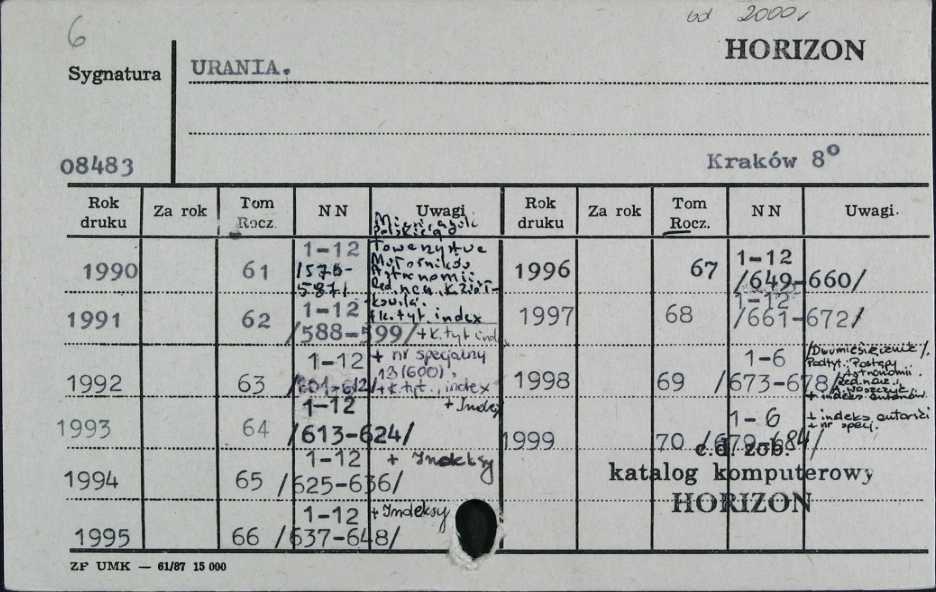 6
od 2000r
HORIZON
Sygnatura
URANIA.
08483
Kraków 8°
Rok druku Za rok Tom Rocz. NN Uwagi Rok druku Za rok Tom Rocz. NN Uwagi.
1990 61 1-12
Towarzystwa
Miłośników
Astronomii.
+k.tyt. index
1991 62 1-12 /588-599/ +k.tyt
1992 63 1-12 + nr specjalny 13(600), +k.tyt., index
1993 64 1-12 /613-624/ + Index
1994 65 1-12 /625-636/ + Indeksy
1995 66 1-12 /637-648/ +Indeksy
1996 67 1-12 /649-660/
1997 68 1-12 /661-672/
1998 69 1-6 /673-678/
/Dwumiesięcznik/.
Podtyt.: Postępy
Astronomii.
+ indeks autorów
1999 70 1-6 /679-684/ + indeks autorów + nr spec.
c.d. zob.
katalog komputerowy
HORIZON
ZP UMK — 61/87 15 000